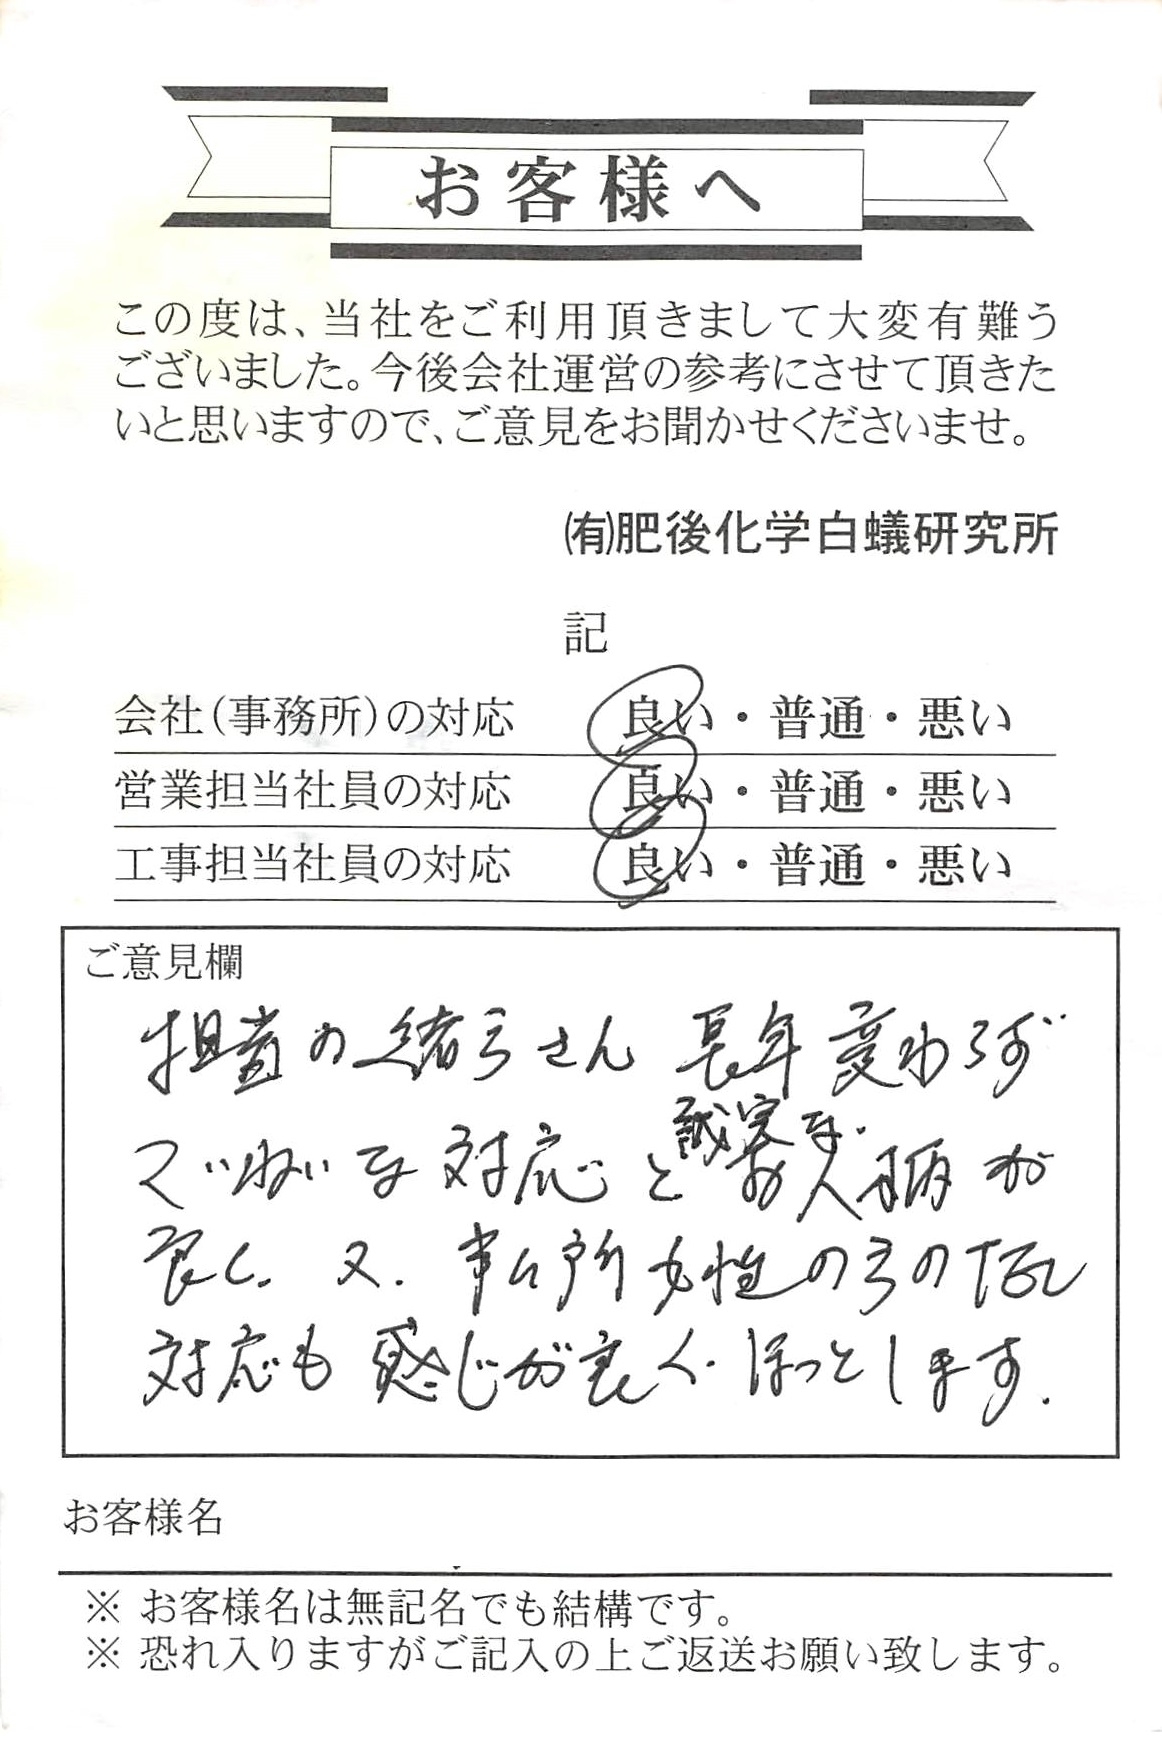 お客様へ
この度は、当社をご利用頂きまして大変有難う
ございました。今後会社運営の参考にさせて頂きた
いと思いますので、ご意見をお聞かせくださいませ。
㈲肥後化学白蟻研究所
記
会社(事務所)の対応 良い・普通・悪い
営業担当社員の対応 良い・普通・悪い
工事担当社員の対応 良い・普通・悪い
ご意見欄
担当の緒方さん 長年変わらず
ていねいな対応と誠実なお人柄が
良く. 又. 事ム所女性の方の
対応も感じが良く. ほっとします.
お客様名
※ お客様名は無記名でも結構です。
※ 恐れ入りますがご記入の上ご返送お願い致します。